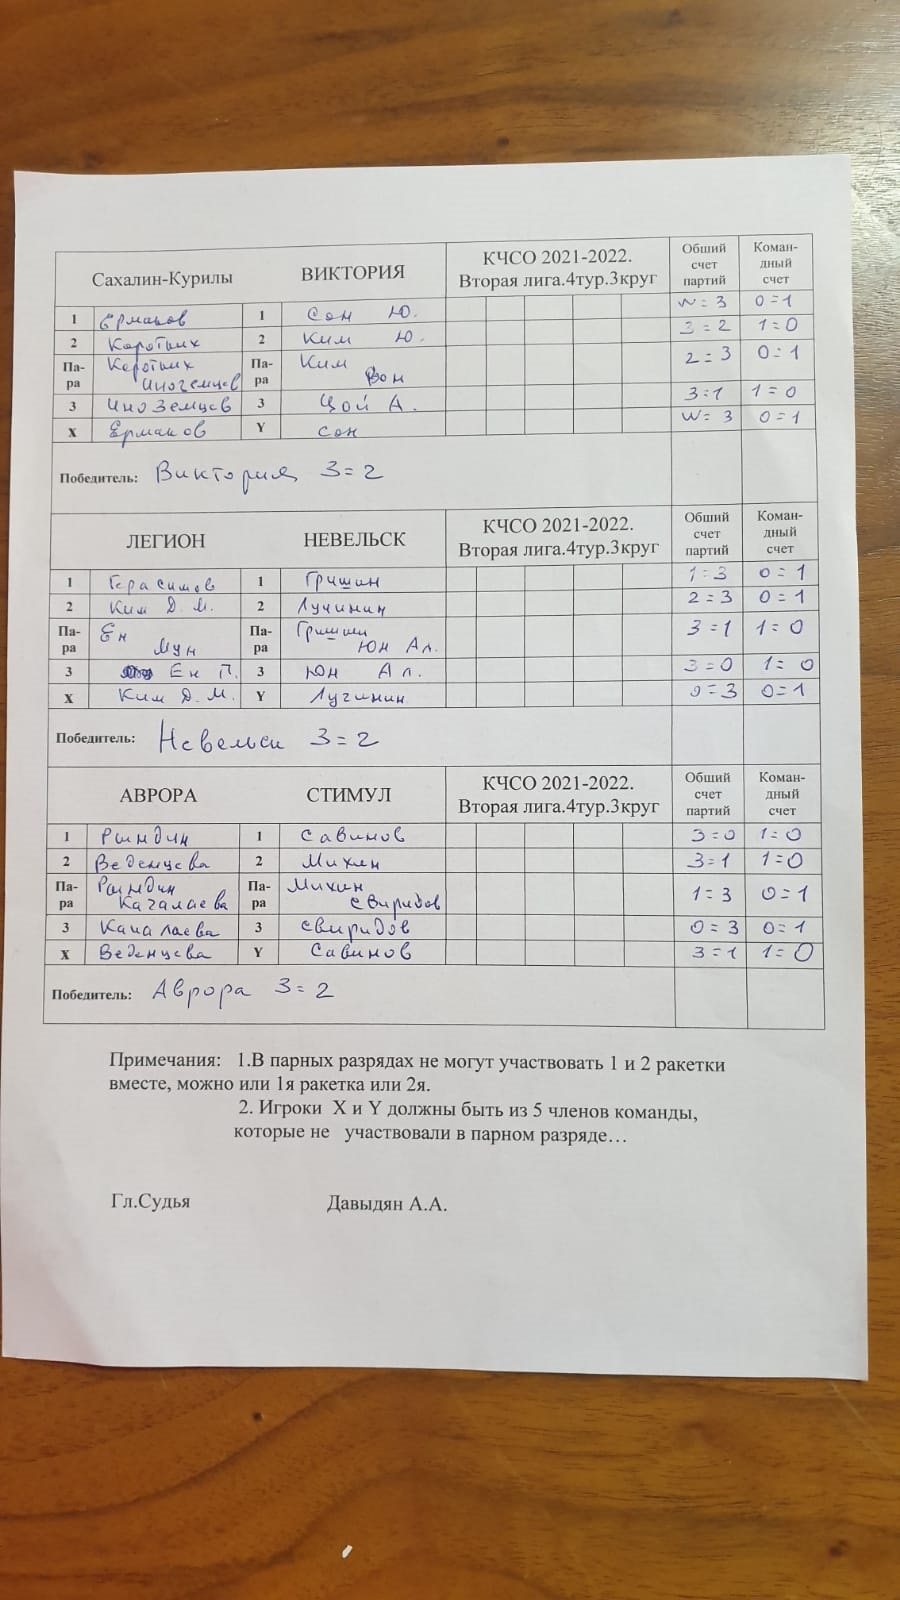 Сахалин-Курилы ВИКТОРИЯ КЧСО 2021-2022. Вторая лига.4тур.3круг Общий счет партий Коман-дный счет
1 Ермаков 1 Сон Ю. W = 3 0 = 1
2 Коротких 2 Ким Ю. 3 = 2 1 = 0
Па-ра Коротких Иноземцев Па-ра Ким Вон 2 = 3 0 = 1
3 Иноземцев 3 Цой А. 3 = 1 1 = 0
X Ермаков Y Сон W = 3 0 = 1
Победитель: Виктория 3 = 2
ЛЕГИОН НЕВЕЛЬСК КЧСО 2021-2022. Вторая лига.4тур.3круг Общий счет партий Коман-дный счет
1 Герасимов 1 Гришин 1 = 3 0 = 1
2 Ким Д. М. 2 Лучинин 2 = 3 0 = 1
Па-ра Ен Мун Па-ра Гришин Юн Ал. 3 = 1 1 = 0
3 Ен П. 3 Юн Ал. 3 = 0 1 = 0
X Ким Д. М. Y Лучинин 0 = 3 0 = 1
Победитель: Невельск 3 = 2
АВРОРА СТИМУЛ КЧСО 2021-2022. Вторая лига.4тур.3круг Общий счет партий Коман-дный счет
1 Рындин 1 Савинов 3 = 0 1 = 0
2 Веденцева 2 Михин 3 = 1 1 = 0
Па-ра Рындин Качалаева Па-ра Михин Свиридов 1 = 3 0 = 1
3 Качалаева 3 Свиридов 0 = 3 0 = 1
X Веденцева Y Савинов 3 = 1 1 = 0
Победитель: Аврора 3 = 2
Примечания: 1.В парных разрядах не могут участвовать 1 и 2 ракетки
вместе, можно или 1я ракетка или 2я.
2. Игроки X и Y должны быть из 5 членов команды,
которые не участвовали в парном разряде…
Гл.Судья Давыдян А.А.